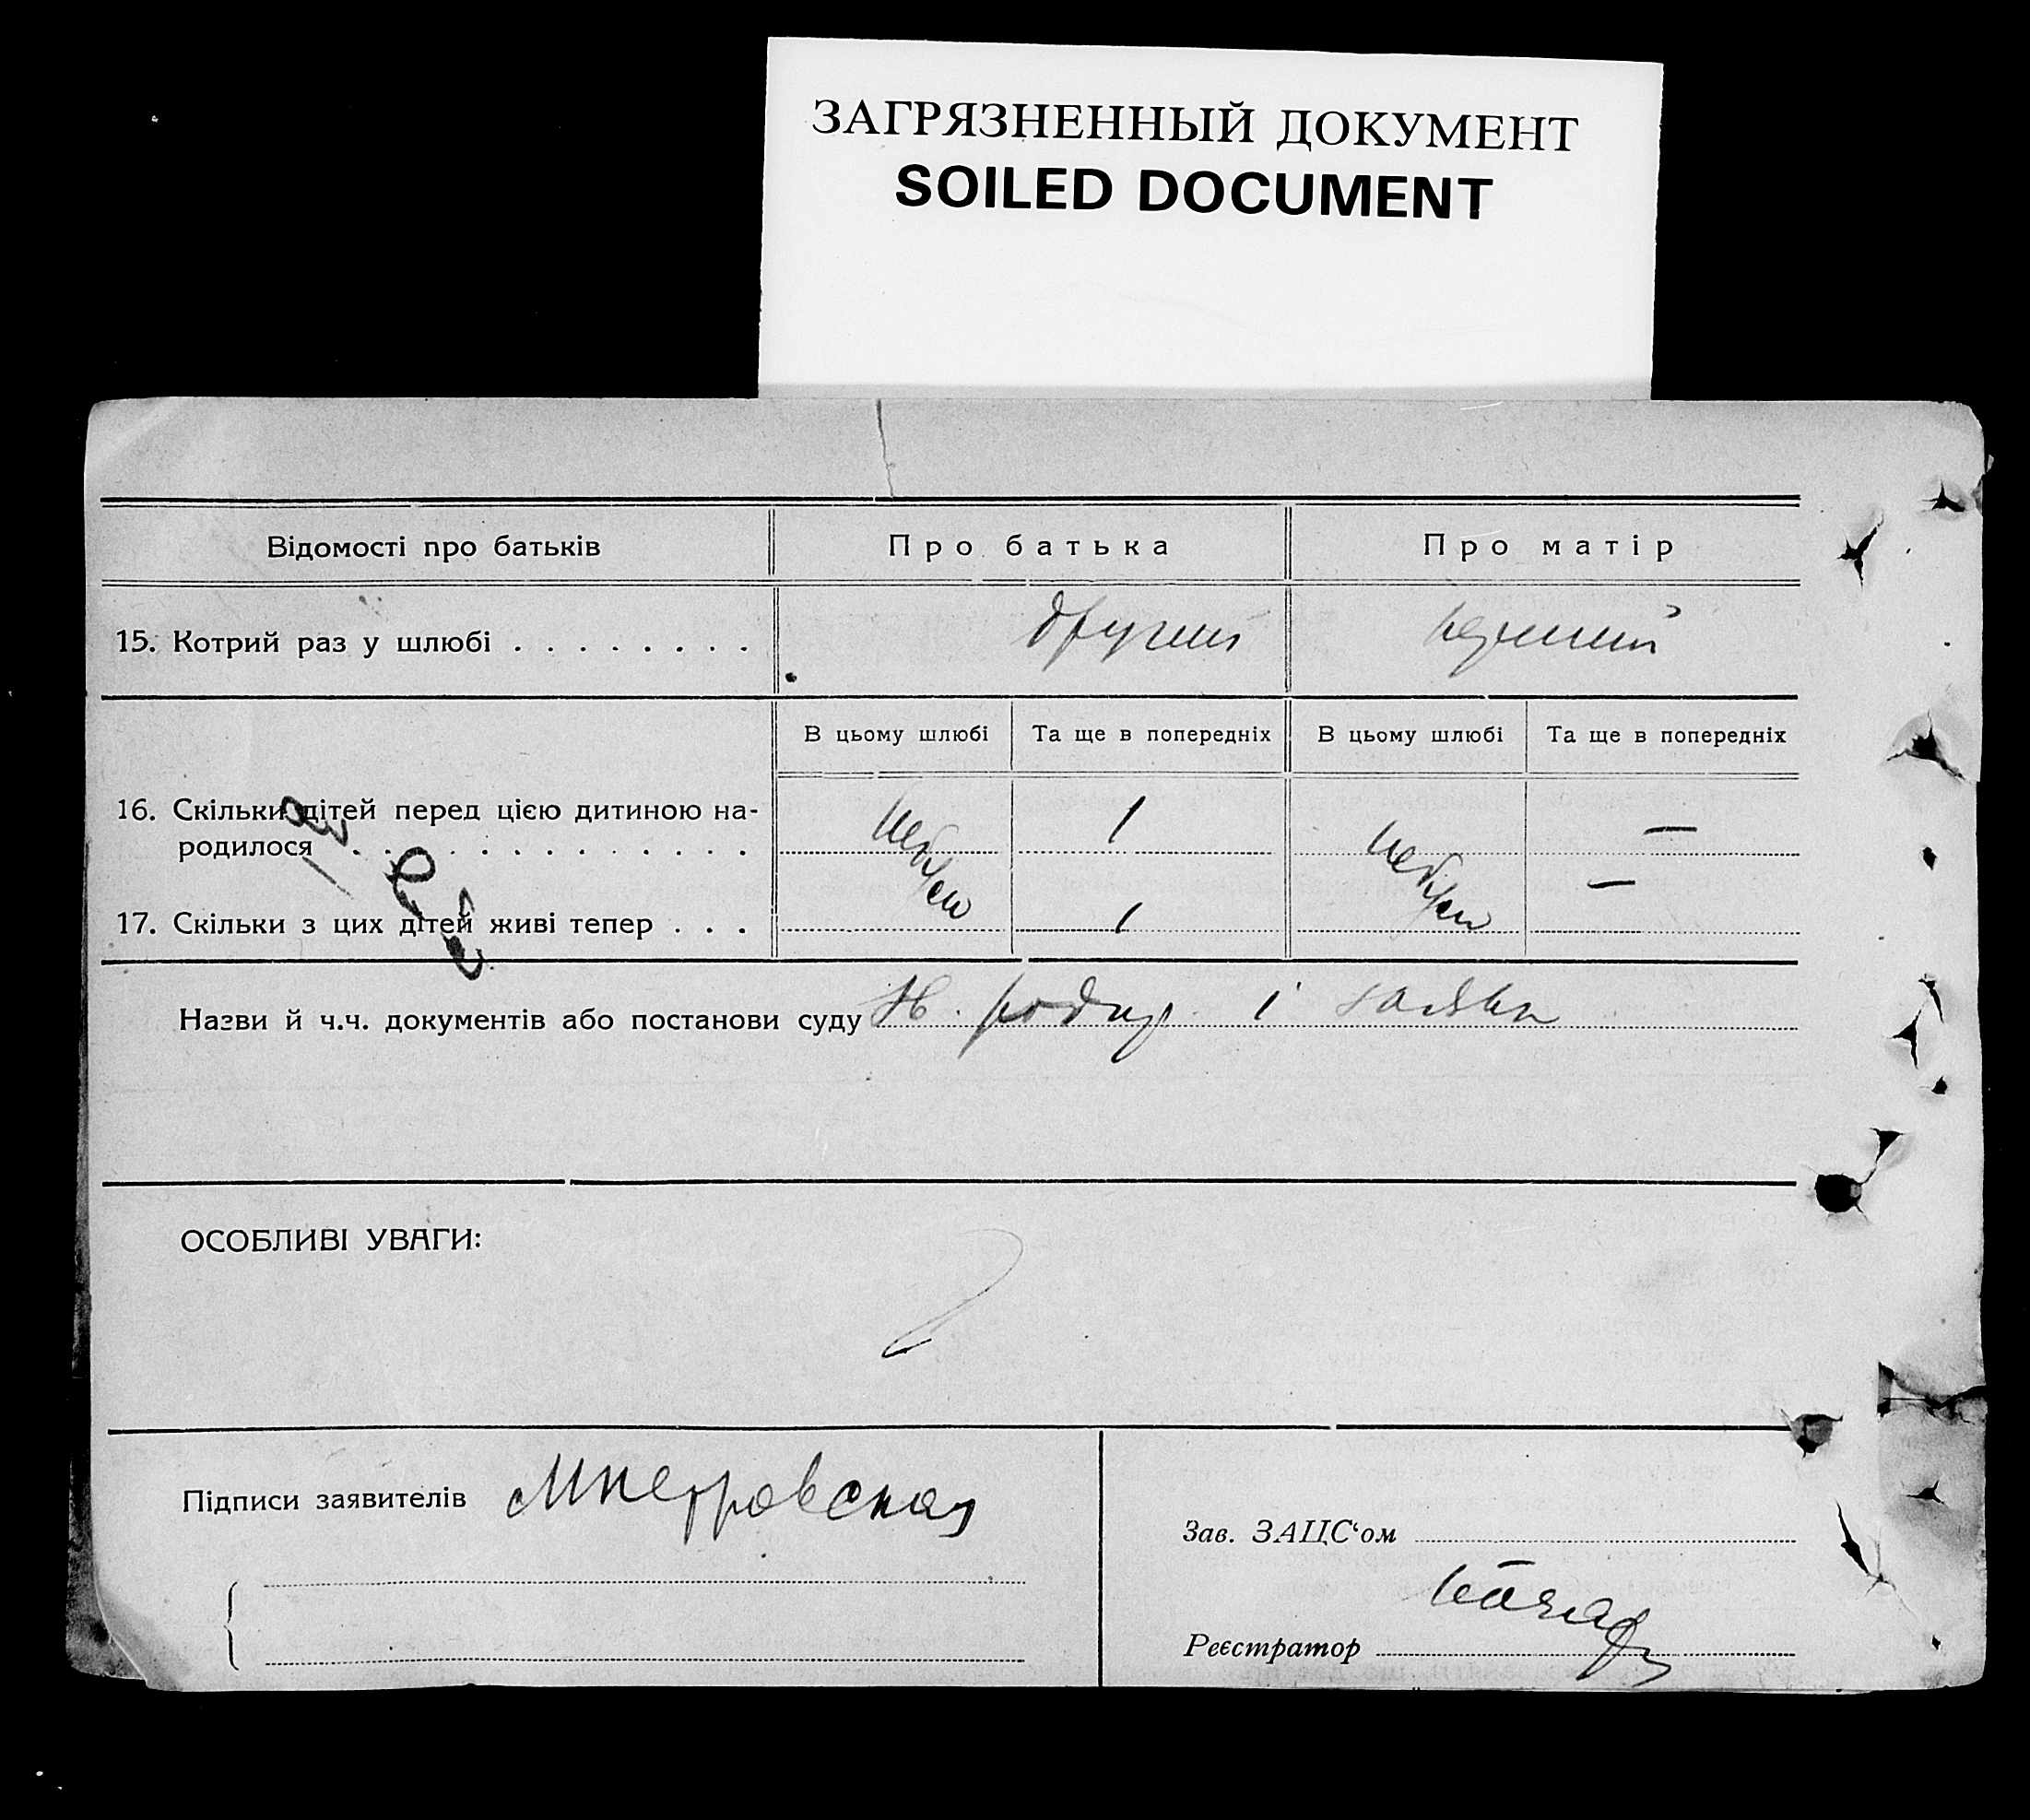 ЗАГРЯЗНЕННЫЙ ДОКУМЕНТ
SOILED DOCUMENT
Відомості про батьків Про батька Про матір
15. Котрий раз у шлюбі . . . . . . . . другий перший
В цьому шлюбі Та ще в попередніх В цьому шлюбі Та ще в попередніх
16. Скільки дітей перед цією дитиною на-
родилося . . . . . . . . . . . . 1 —
17. Скільки з цих дітей живі тепер . . . 1 —
Назви й ч.ч. документів або постанови суду і заява
ОСОБЛИВІ УВАГИ:
Підписи заявителів МПетровская
Зав. ЗАЦС‘ом
Реєстратор